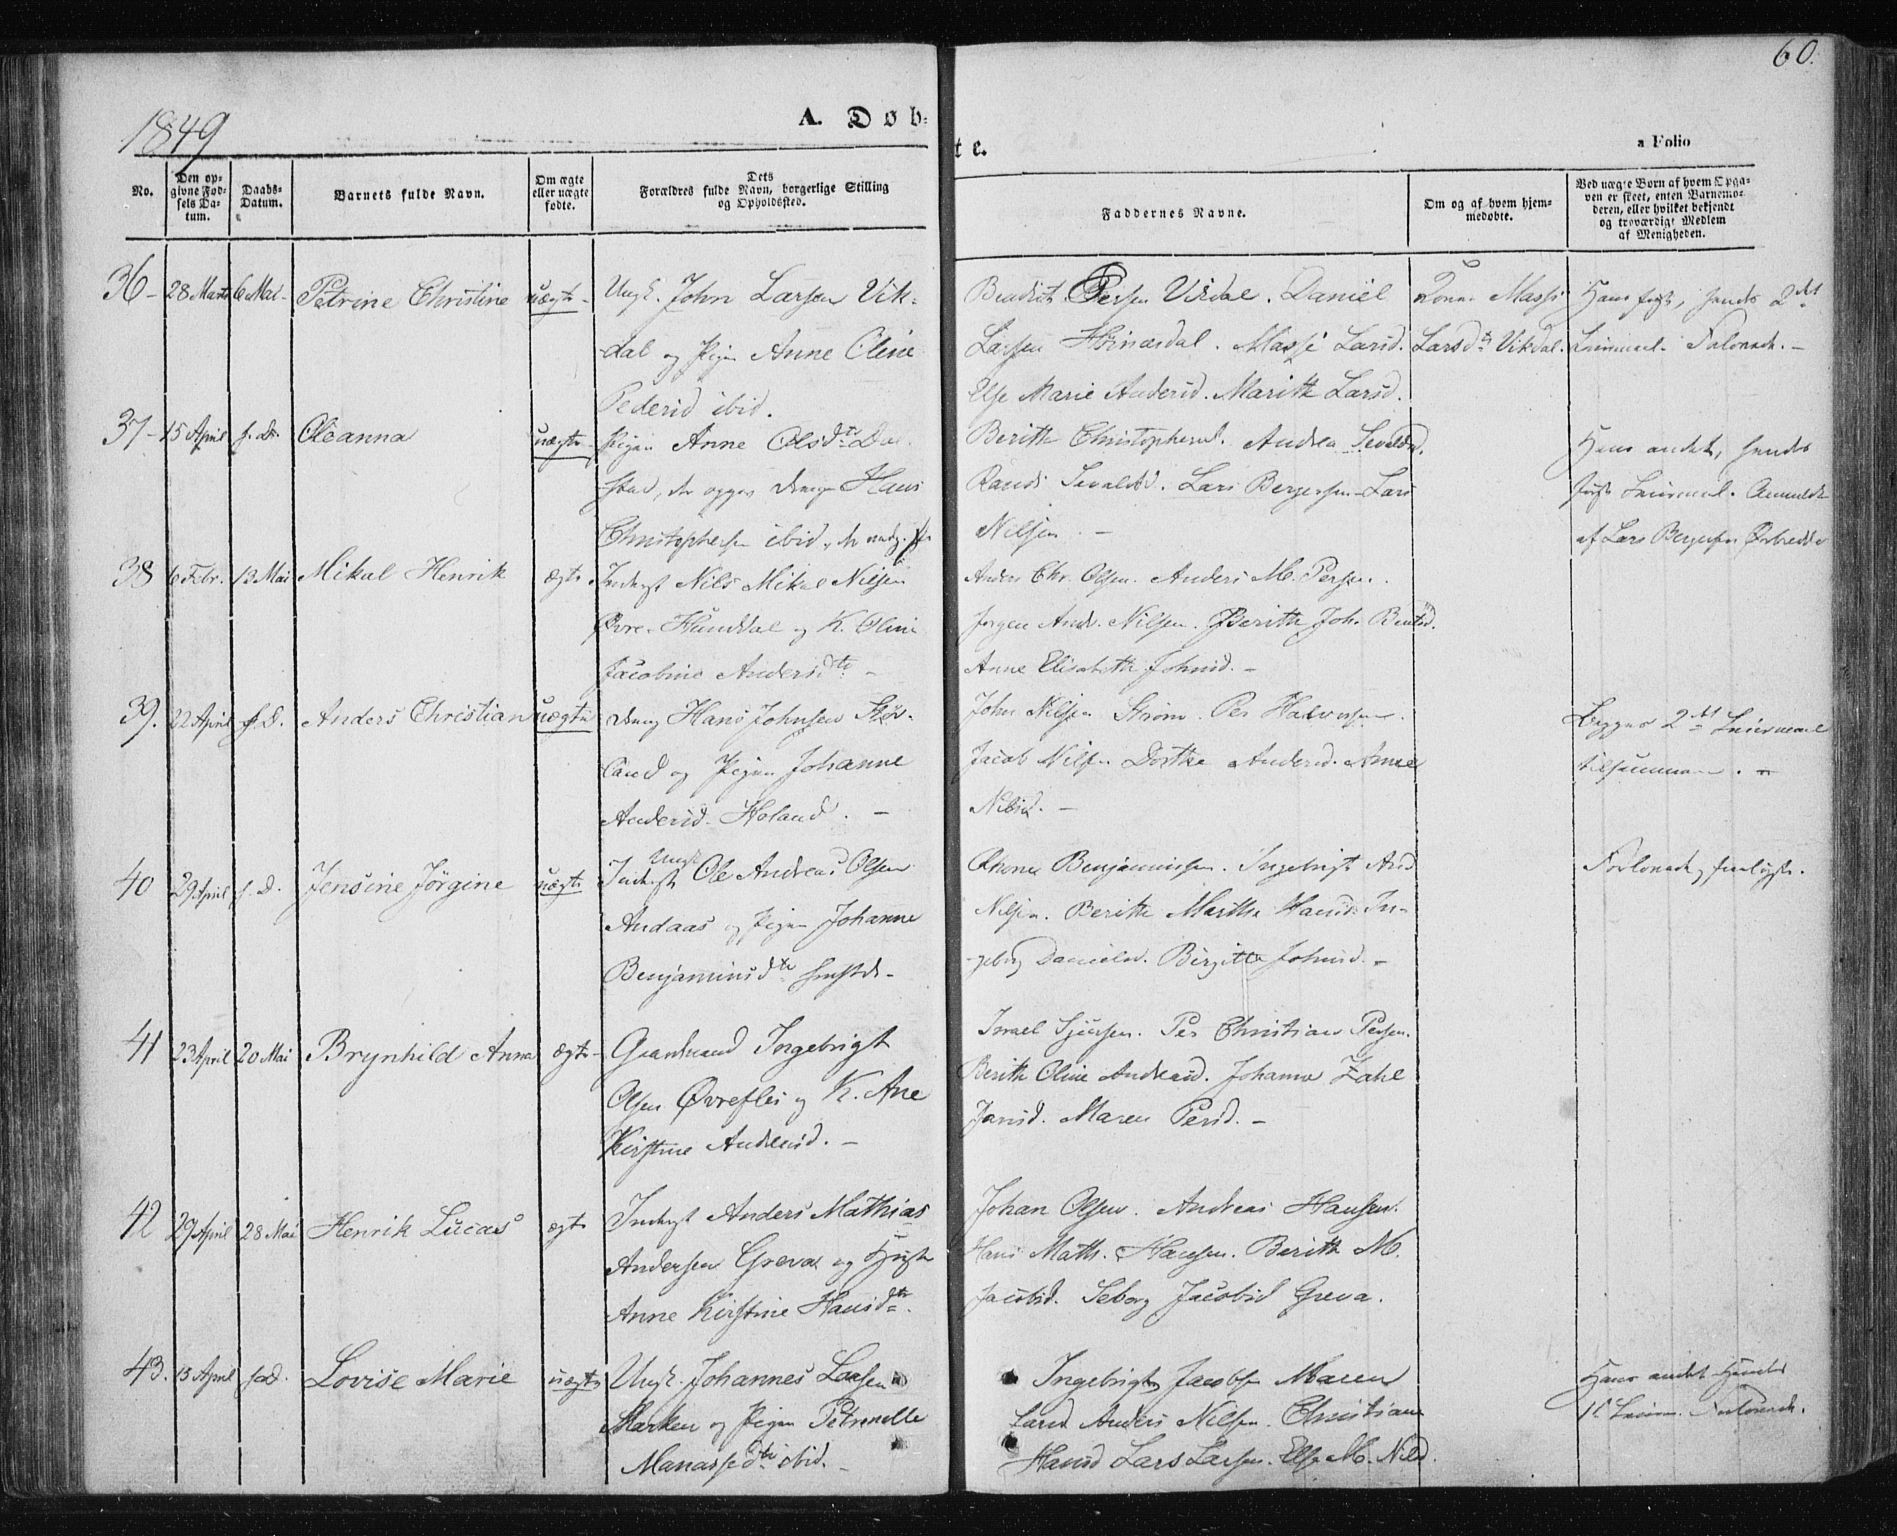 60.
1849
A. Døb-
te.
a Folio
No.
Den op-
givne Fød-
sels Da-
tum.
Daabs-
Datum.
Barnets fulde Navn.
Om ægte
eller uægte
fødte.
Dets
Forældres fulde Navn, borgerlige Stilling
og Opholdssted.
Faddernes Navne.
Om og af hvem hjem-
medøbte.
Ved uægte Børn af hvem Opga-
ven er skeet, enten Barnemo-
deren, eller hvilket bekjendt
og troværdigt Medlem
af Menigheden.
36 - 28 Marts 6 Mai - Petrine Christine uægte - Ungk. John Larsen Vik-
dal og Pigen Anne Oline
Pedersd ibid.
Persen Virdal. Daniel
Larsen . Massi Larsd.
Else Marie Andersd. Marith Larsd.
Massi
Larsdtr Vikdal.
Hans første, hendes 2det
Leiermaal. -
37 - 15 April s. D. Oleanna uægte - Pigen Anne Olsdtr Dal-
stad, der opgav Hans
Christophersen ibid,
Berith Christophersd. Andrea Sevaldsd.
Randi Sevaldsd. Lars Bergersen - Lars
Nilsen. -
Hans andet, hendes
første Leiermaal. Anmeldt
af Lars Bergersen
38 6 Febr. 13 Mai Mikal Henrik ægte. Inderst Nils Mikal Nilsen
Øvre- Hunddal og K. Oline
Jacobine Andersdtr -
Anders Chr. Olsen. Anders M. Persen.
Jørgen Andr. Nilsen. Berith Joh.
Anne Elisabeth Johnsd. -
39. 22 April s. D. Anders Christian uægte Hans Johnsen Stør-
land og Pigen Johanne
Andersd. Holand. -
John Nilsen Strøm. Per Halvorsen.
Jacob Nilsen Dorthe Andersd. Anne
Nilsd. -
Begges 2det Leiermaal
tilsammen. -
40 29 April s. D. Jensine Jørgine uægte Inderst Ungk Ole Andreas Olsen
Andaas og Pigen Johanne
Benjaminsdtr
Benjaminsen. Ingebrigt And
Nilsen. Berith Marthe Hansd. In-
geborg Danielsd. Birgitte Johnsd. -
41 23 April 20 Mai Brynhild Anna ægte - Gaardmand Ingebrigt
Olsen Øvreflei og K. Ane
Kirstine Andersd. -
Israel Sjursen. Per Christian Persen.
Berith Oline Andersd. Johanna Zahl
Jansd. Maren Persd. -
42 29 April 28 Mai Henrik Lucas ægte Inderst Anders Mathias
Andersen Greva og
Anne Kirstine Hansdtr.
Johan Olsen. Andreas Hansen.
Hans Math. Hansen. Berith M.
Jacobsd. Seborg Jacobsd Greva.
43. 15 April s. D. Lovise Marie uægte Ungk. Johannes Larsen
Marken og Pigen Petrnelle
Manassedtr ibid. -
Ingebrigt Jacobsen Maren
Larsd. Anders Nilsen. Christiane
Hansd Lars Larsen. Else M. Nilsd.
Hans andet Hendes
1te Leierm.